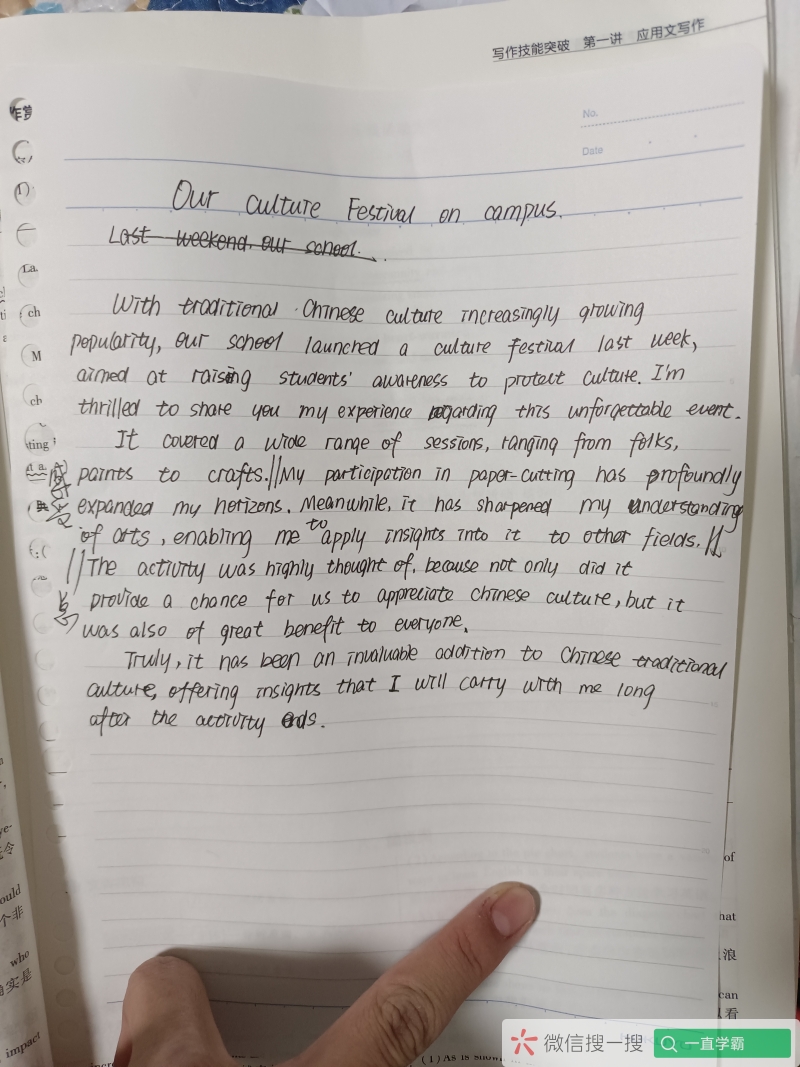 写作技能突破 第一讲 应用文写作
No.
Date
Our culture Festival on campus.
Last weekend, our school
With traditional Chinese culture increasingly growing
popularity, our school launched a culture festival last week,
aimed at raising students' awareness to protect culture. I'm
thrilled to share you my experience regarding this unforgettable event.
It covered a wide range of sessions, ranging from folks,
paints to crafts.//My participation in paper-cutting has profoundly
expanded my horizons. Meanwhile, it has sharpened my understanding
of arts, enabling me to apply insights into it to other fields.//
//The activity was highly thought of, because not only did it
provide a chance for us to appreciate chinese culture, but it
was also of great benefit to everyone.
Truly, it has been an invaluable addition to Chinese traditional
culture, offering insights that I will carry with me long
after the activity ends.
La
ch
M
ch
ting
ould
个非
who
确实是
impact
of
hat
浪
can
看
(1) As is shown
微信搜一搜
一直学霸